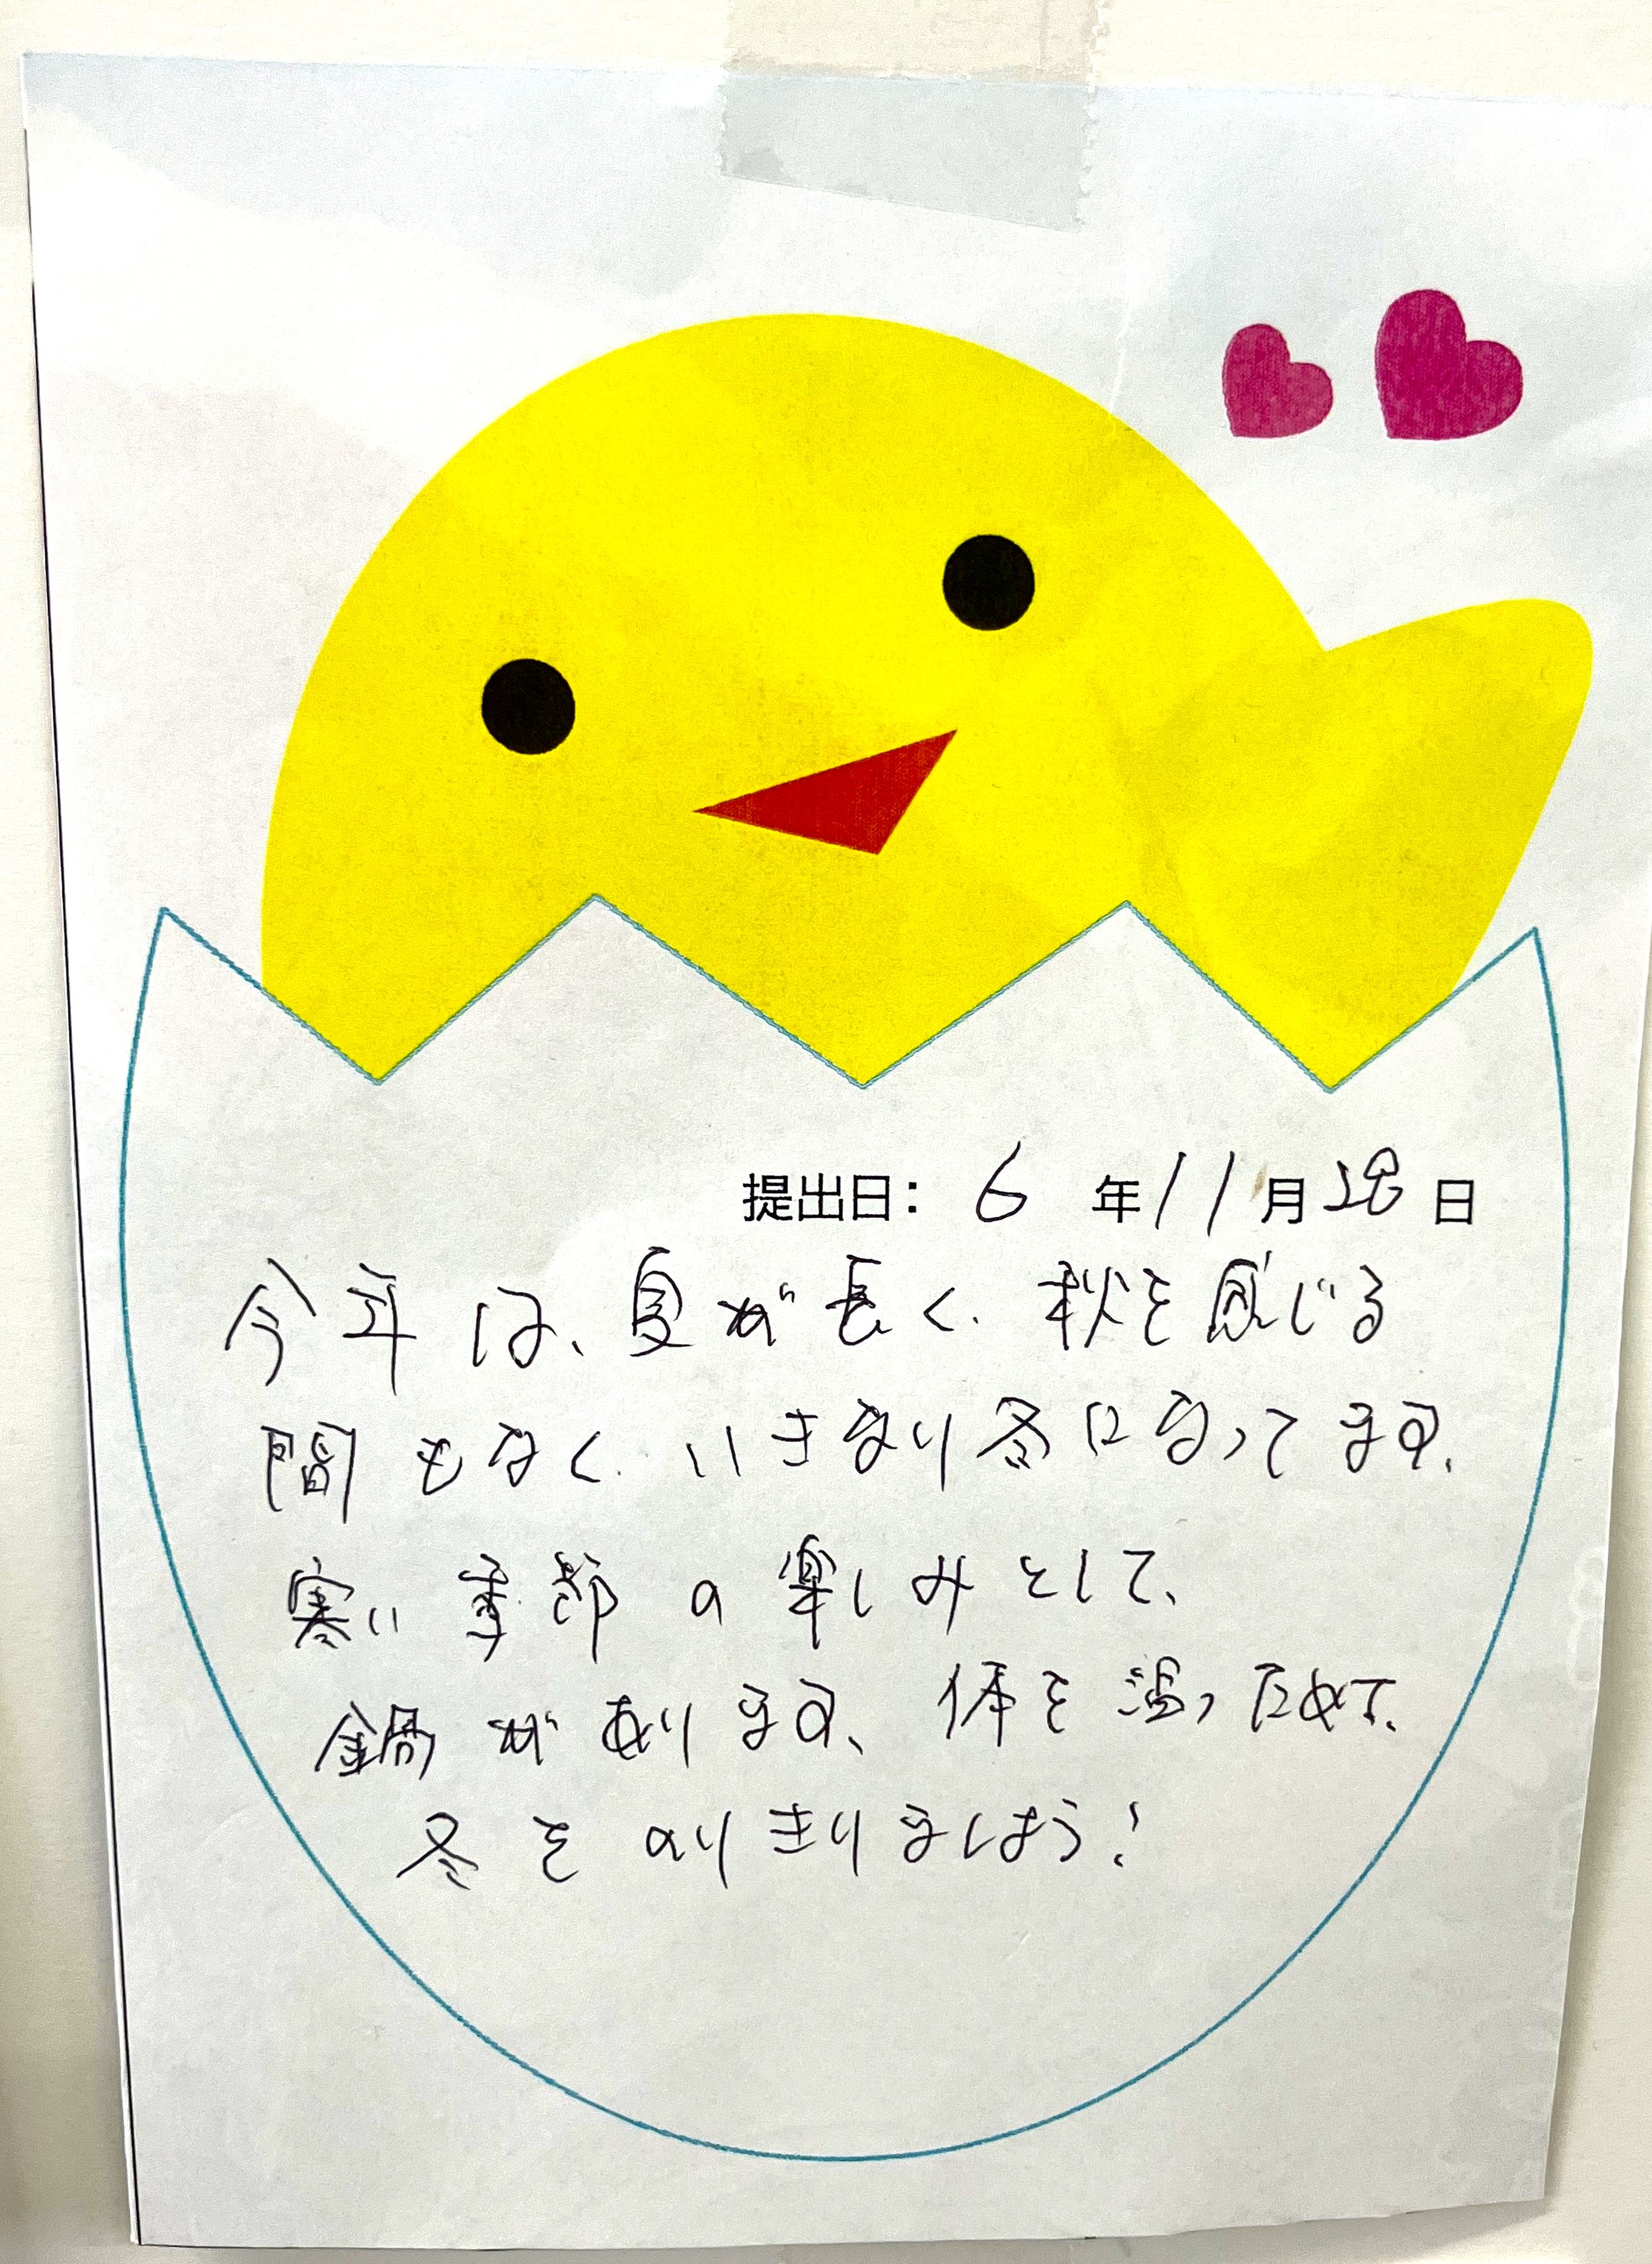 提出日: 6 年 11 月 28 日
今年は、夏が長く、秋を感じる
間もなく、いきなり冬になってます。
寒い季節の楽しみとして、
鍋があります、体を温っためて、
冬をのりきりましょう!